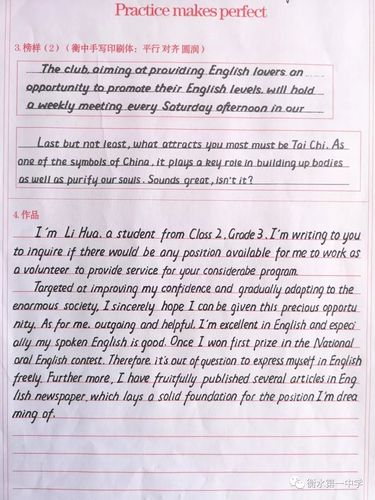 Practice makes perfect
3.榜样（2）（衡中手写印刷体：平行 对齐 圆润）
The club, aiming at providing English lovers an
opportunity to promote their English levels, will hold
a weekly meeting every Saturday afternoon in our
Last but not least, what attracts you most must be Tai Chi. As
one of the symbols of China, it plays a key role in building up bodies
as well as purify our souls. Sounds great, isn't it?
4.作品
I'm Li Hua, a student from Class 2, Grade 3. I'm writing to you
to inquire if there would be any position available for me to work as
a volunteer to provide service for your considerabe program.
Targeted at improving my confidence and gradually adapting to the
enormous society, I sincerely hope I can be given this precious opportu
nity. As for me, outgoing and helpful, I'm excellent in English and especi
ally my spoken English is good. Once I won first prize in the National
oral English contest. Therefore, it's out of question to express myself in English
freely. Further more, I have fruitfully published several articles in Eng
lish newspaper, which lays a solid foundation for the position I'm drea
ming of.
衡水第一中学